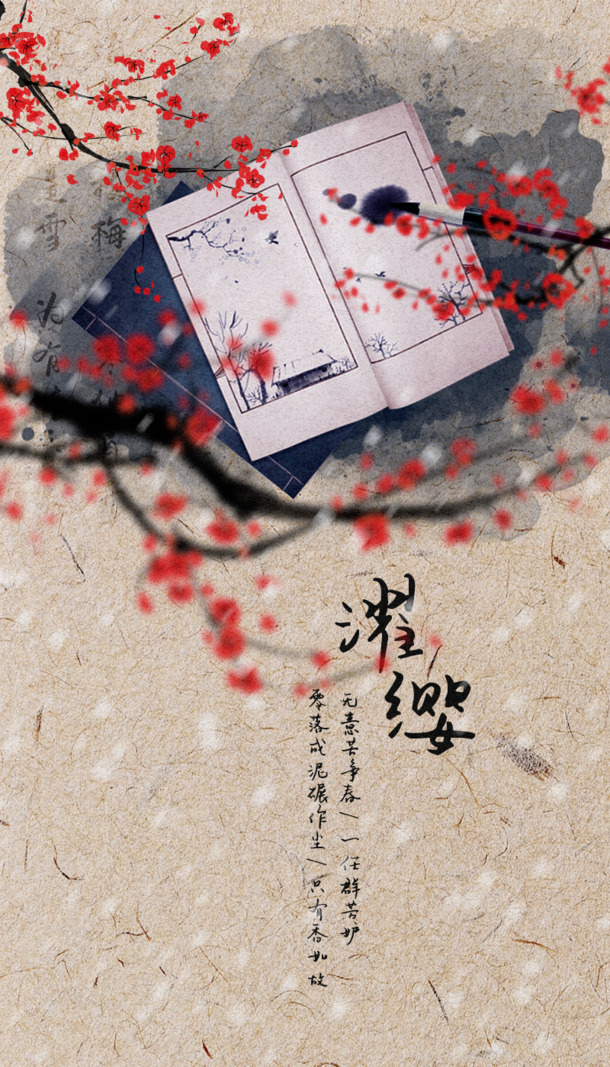 梅
是雪 为有
濯缨
无意苦争春\一任群芳妒
零落成泥碾作尘\只有香如故